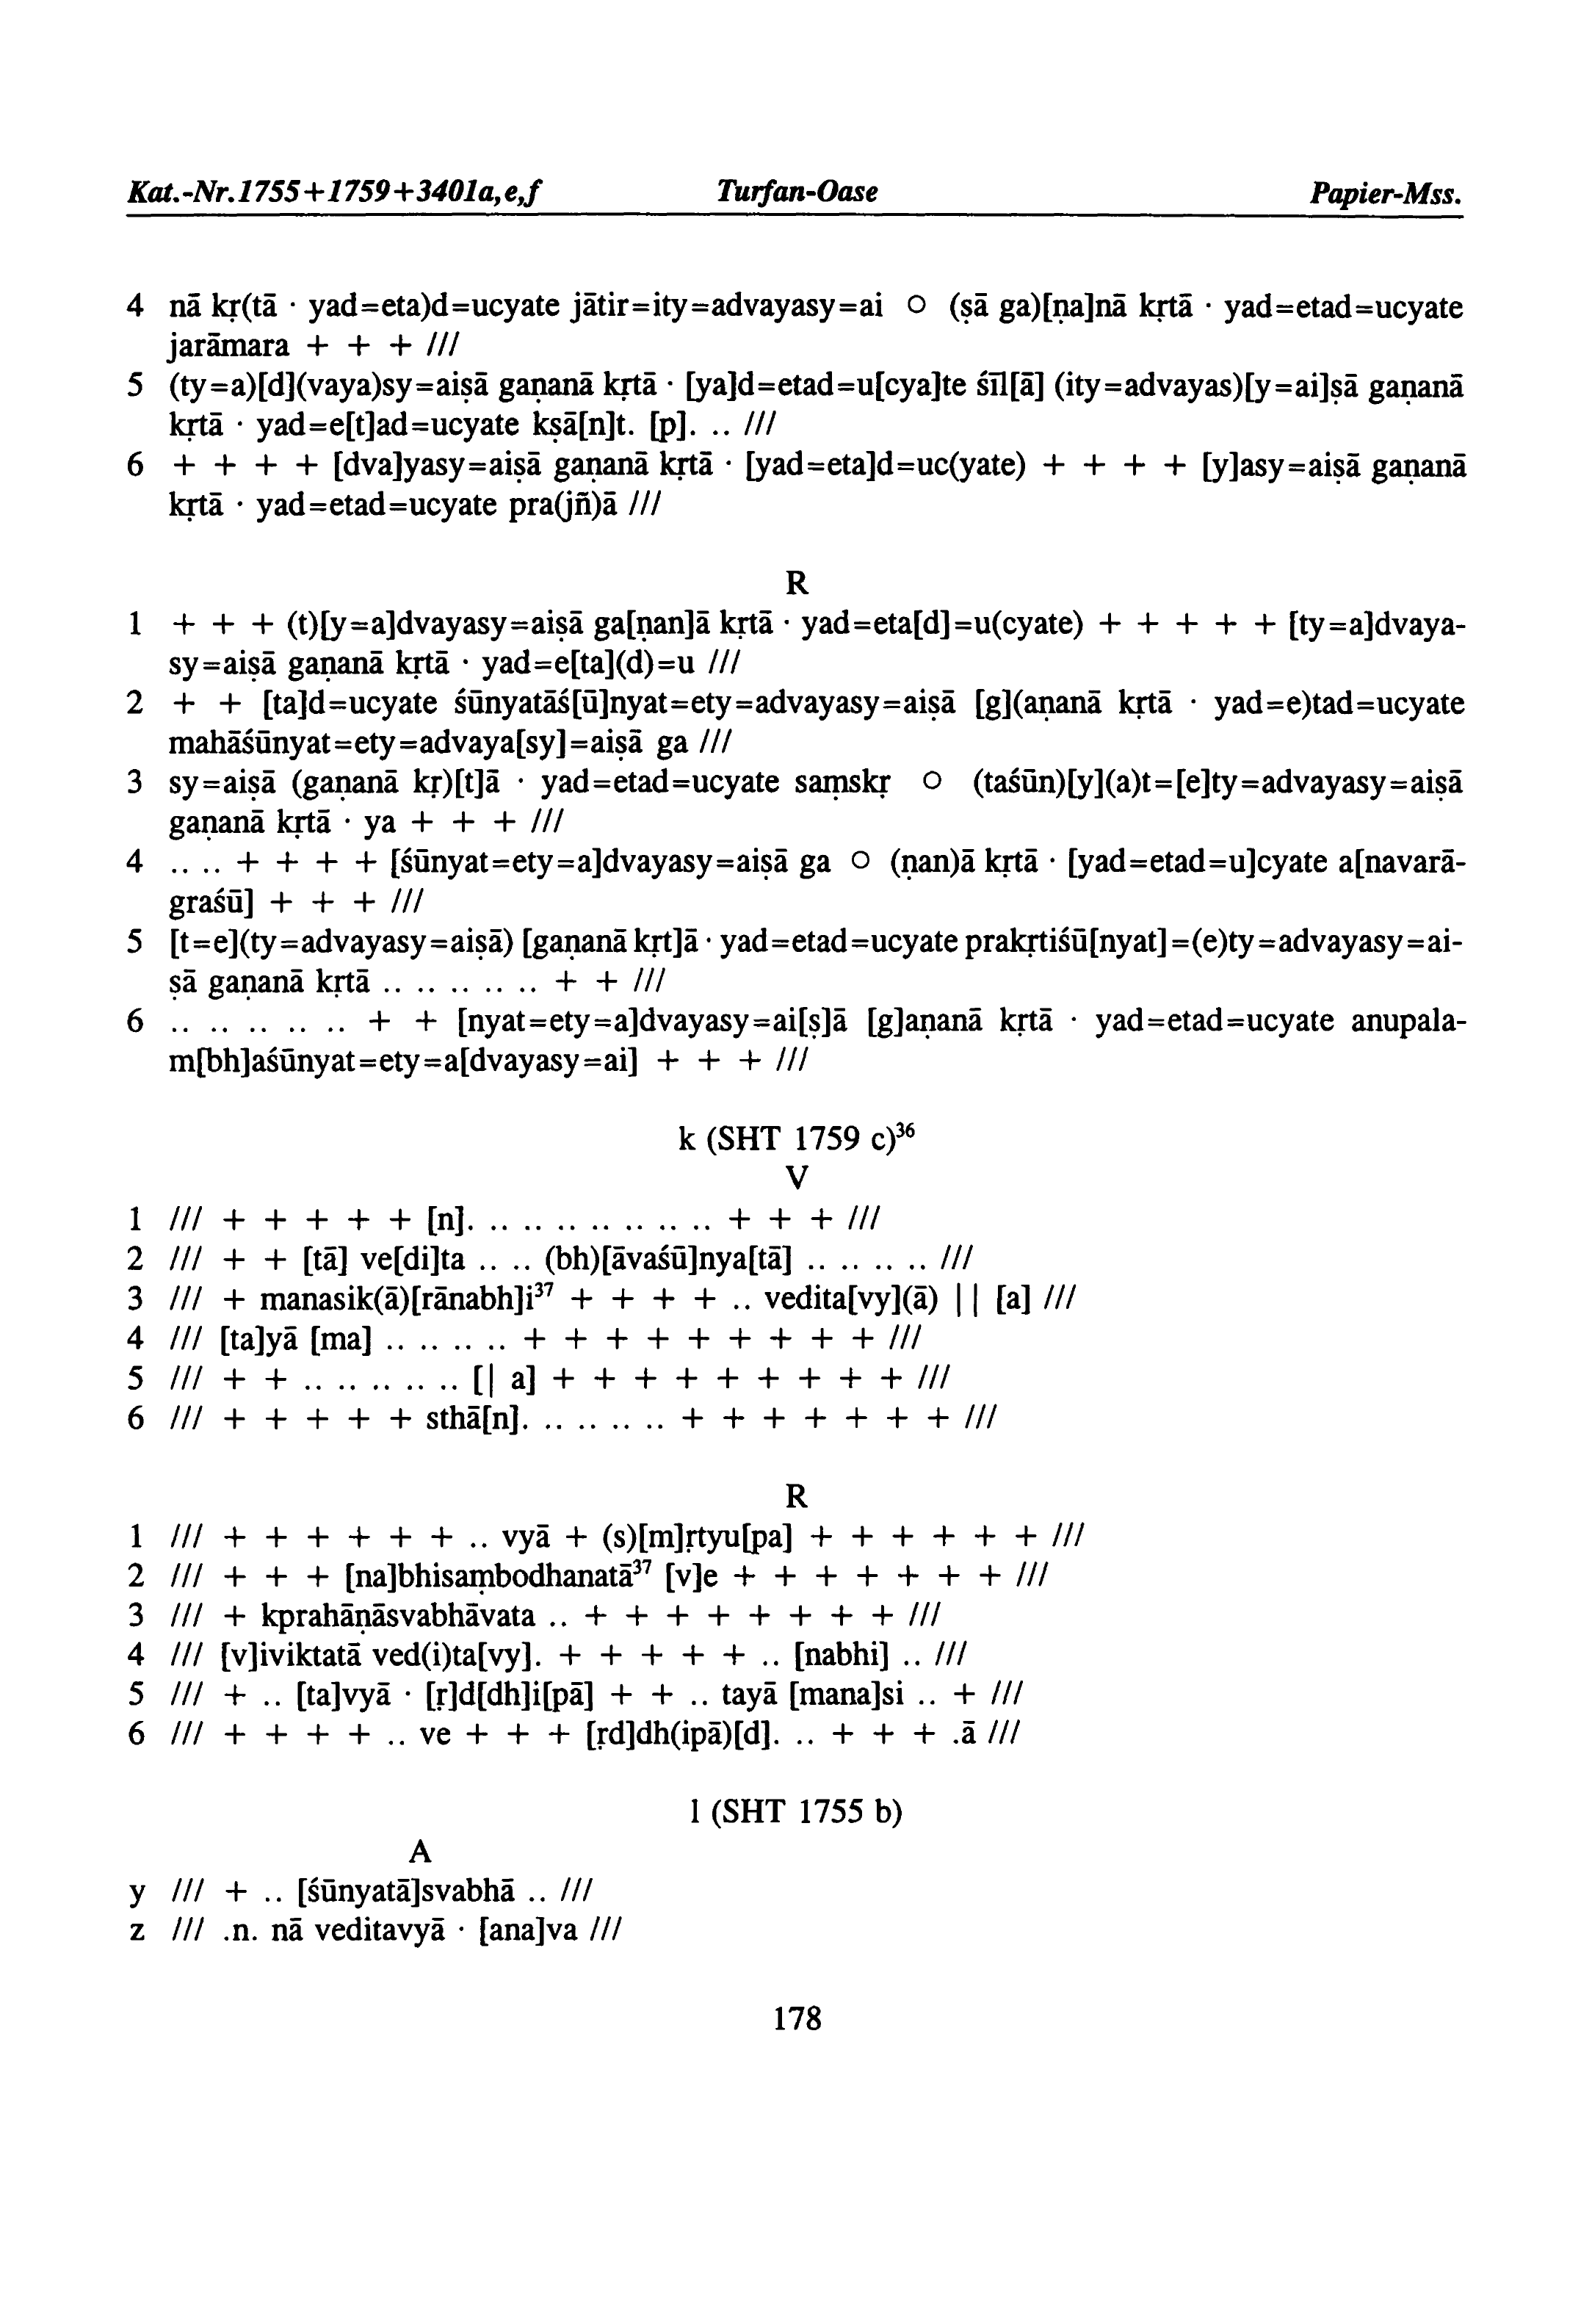 Kat.-Nr.1755+1759+3401a,e,f Turfan-Oase Papier-Mss.
4 nā kṛ(tā · yad=eta)d=ucyate jātir=ity=advayasy=ai ○ (ṣā ga)[ṇa]nā kṛtā · yad=etad=ucyate
jarāmara + + + ///
5 (ty=a)[d](vaya)sy=aiṣā gaṇanā kṛtā · [ya]d=etad=u[cya]te śīl[ā] (ity=advayas)[y=ai]ṣā gaṇanā
kṛtā · yad=e[t]ad=ucyate kṣā[n]t. [p]. .. ///
6 + + + + [dva]yasy=aiṣā gaṇanā kṛtā · [yad=eta]d=uc(yate) + + + + [y]asy=aiṣā gaṇanā
kṛtā · yad=etad=ucyate pra(jñ)ā ///
R
1 + + + (t)[y=a]dvayasy=aiṣā ga[ṇan]ā kṛtā · yad=eta[d]=u(cyate) + + + + + [ty=a]dvaya-
sy=aiṣā gaṇanā kṛtā · yad=e[ta](d)=u ///
2 + + [ta]d=ucyate śūnyatāś[ū]nyat=ety=advayasy=aiṣā [g](aṇanā kṛtā · yad=e)tad=ucyate
mahāśūnyat=ety=advaya[sy]=aiṣā ga ///
3 sy=aiṣā (gaṇanā kṛ)[t]ā · yad=etad=ucyate saṃskṛ ○ (taśūn)[y](a)t=[e]ty=advayasy=aiṣā
gaṇanā kṛtā · ya + + + ///
4 .. .. + + + + [śūnyat=ety=a]dvayasy=aiṣā ga ○ (ṇan)ā kṛtā · [yad=etad=u]cyate a[navarā-
graśū] + + + ///
5 [t=e](ty=advayasy=aiṣā) [gaṇanā kṛt]ā · yad=etad=ucyate prakṛtiśū[nyat]=(e)ty=advayasy=ai-
ṣā gaṇanā kṛtā .. .. .. .. .. + + ///
6 .. .. .. .. .. + + [nyat=ety=a]dvayasy=ai[ṣ]ā [g]aṇanā kṛtā · yad=etad=ucyate anupala-
m[bh]aśūnyat=ety=a[dvayasy=ai] + + + ///
k (SHT 1759 c)³⁶
V
1 /// + + + + + [n]. .. .. .. .. .. .. .. + + + ///
2 /// + + [tā] ve[di]ta .. .. (bh)[āvaśū]nya[tā] .. .. .. .. ///
3 /// + manasik(ā)[rānabh]i³⁷ + + + + .. vedita[vy](ā) || [a] ///
4 /// [ta]yā [ma] .. .. .. .. + + + + + + + + + ///
5 /// + + .. .. .. .. .. [| a] + + + + + + + + + ///
6 /// + + + + + sthā[n]. .. .. .. .. + + + + + + + ///
R
1 /// + + + + + + .. vyā + (s)[m]ṛtyu[pa] + + + + + + ///
2 /// + + + [na]bhisaṃbodhanatā³⁷ [v]e + + + + + + + ///
3 /// + kprahāṇāsvabhāvata .. + + + + + + + + ///
4 /// [v]iviktatā ved(i)ta[vy]. + + + + + .. [nabhi] .. ///
5 /// + .. [ta]vyā · [ṛ]d[dh]i[pā] + + .. tayā [mana]si .. + ///
6 /// + + + + .. ve + + + [ṛd]dh(ipā)[d]. .. + + + .ā ///
l (SHT 1755 b)
A
y /// + .. [śūnyatā]svabhā .. ///
z /// .n. nā veditavyā · [ana]va ///
178